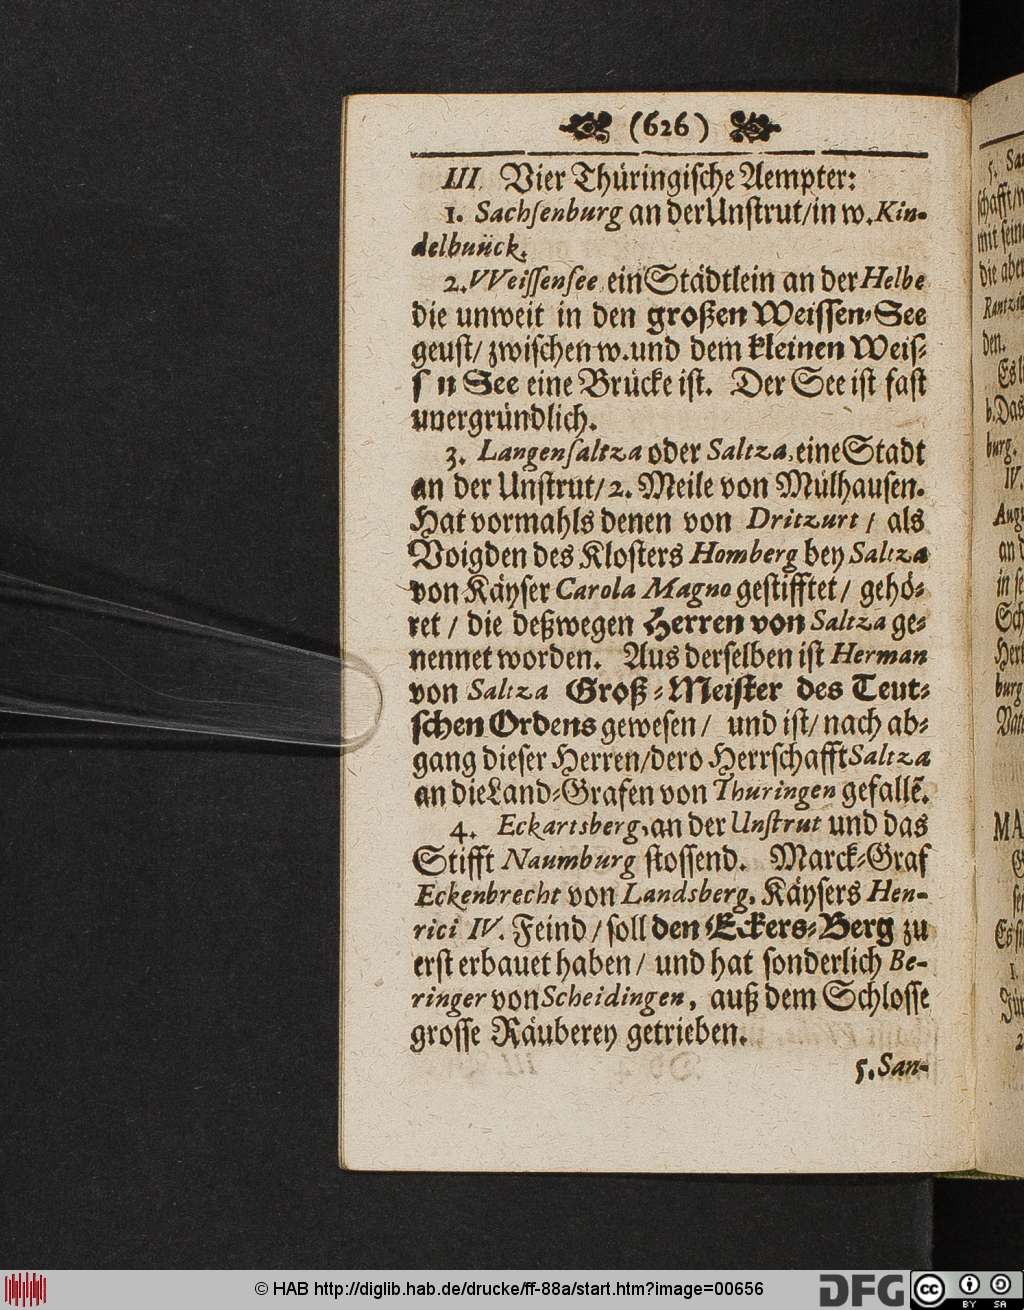 (626)
III. Vier Thüringische Aempter:
1. Sachsenburg an der Unstrut/ in w. Kin-
delbuück.
2. VVeissensee ein Städtlein an der Helbe
die unweit in den großen Weissen-See
geust/ zwischen w. und dem kleinen Weis-
s n See eine Brücke ist. Der See ist fast
unergründlich.
3. Langensaltza oder Saltza, eine Stadt
an der Unstrut/ 2. Meile von Mülhausen.
Hat vormahls denen von Dritzurt / als
Voigden des Klosters Homberg bey Saltza
von Käyser Carola Magno gestifftet / gehö-
ret / die deßwegen Herren von Saltza ge-
nennet worden. Aus derselben ist Herman
von Saltza Groß-Meister des Teut-
schen Ordens gewesen / und ist/ nach ab-
gang dieser Herren/ dero Herrschafft Saltza
an die Land-Grafen von Thuringen gefallẽ.
4. Eckartsberg, an der Unstrut und das
Stifft Naumburg stossend. Marck-Graf
Eckenbrecht von Landsberg, Käysers Hen-
rici IV. Feind / soll den Eckers-Berg zu
erst erbauet haben / und hat sonderlich Be-
ringer von Scheidingen, auß dem Schlosse
grosse Räuberey getrieben.
5. San-
5. Sa
schafft
mit sein
die aber
den.
Es l
b. Das
burg.
IV.
Augu
an d
in se
Sch
Her
burg
MA
G
se
Es si
1.
2
© HAB http://diglib.hab.de/drucke/ff-88a/start.htm?image=00656
DFG
cc
BY SA